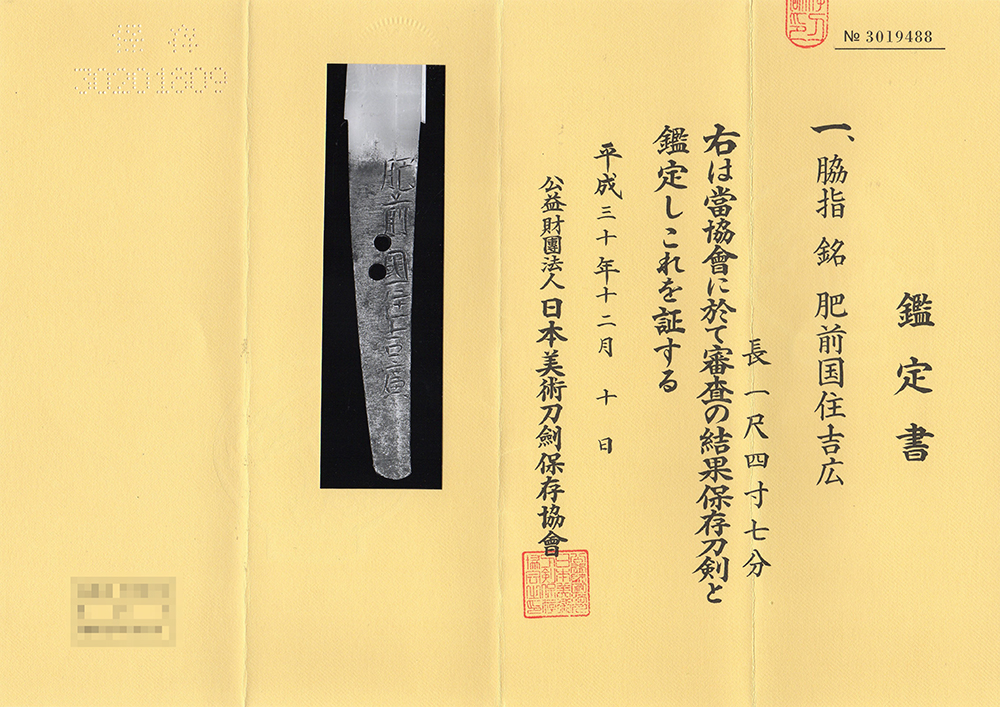 № 3019488
鑑定書
一、脇指 銘 肥前国住吉広
長一尺四寸七分
右は當協會に於て審査の結果保存刀剣と
鑑定しこれを証する
平成三十年十二月 十 日
公益財團法人日本美術刀劍保存協會
肥前國住吉廣
保存
30201809